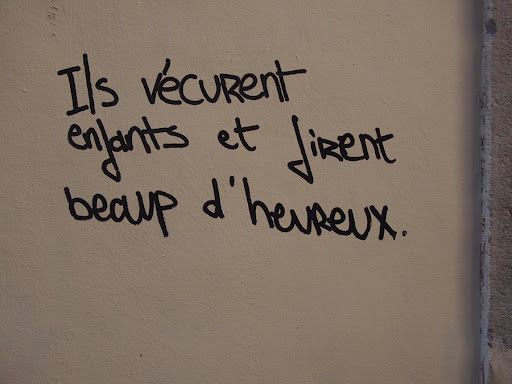 Ils vécurent
enfants et firent
beaup d'heureux.